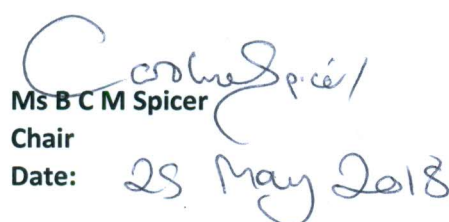 Caroline Spicer
Ms B C M Spicer
Chair
Date: 25 May 2018